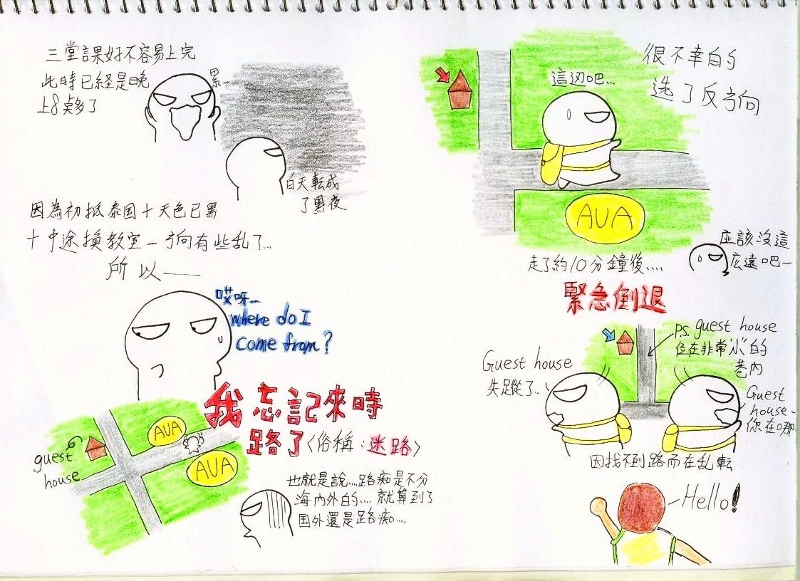 三堂課好不容易上完
此時已経是晚
上8点多了
累…
白天転成
了黑夜
因為初抵泰国十天色已黑
十中途換教室一方向有些乱了…
所以——
哎呀…
where do I
come from?
我忘記來時
路了〈俗稱:迷路〉
guest
house
AUA
AUA
也就是說....路痴是不分
海內外的.... 就算到了
国外還是路痴....
很不幸的
選了反方向
這边吧...
AUA
走了約10分鐘後....
应該沒這
広遠吧一
緊急倒退
PS. guest house
位在非常小的
巷內
Guest house
失蹤了..
Guest
house-
你在哪
因找不到路而在乱転
Hello!